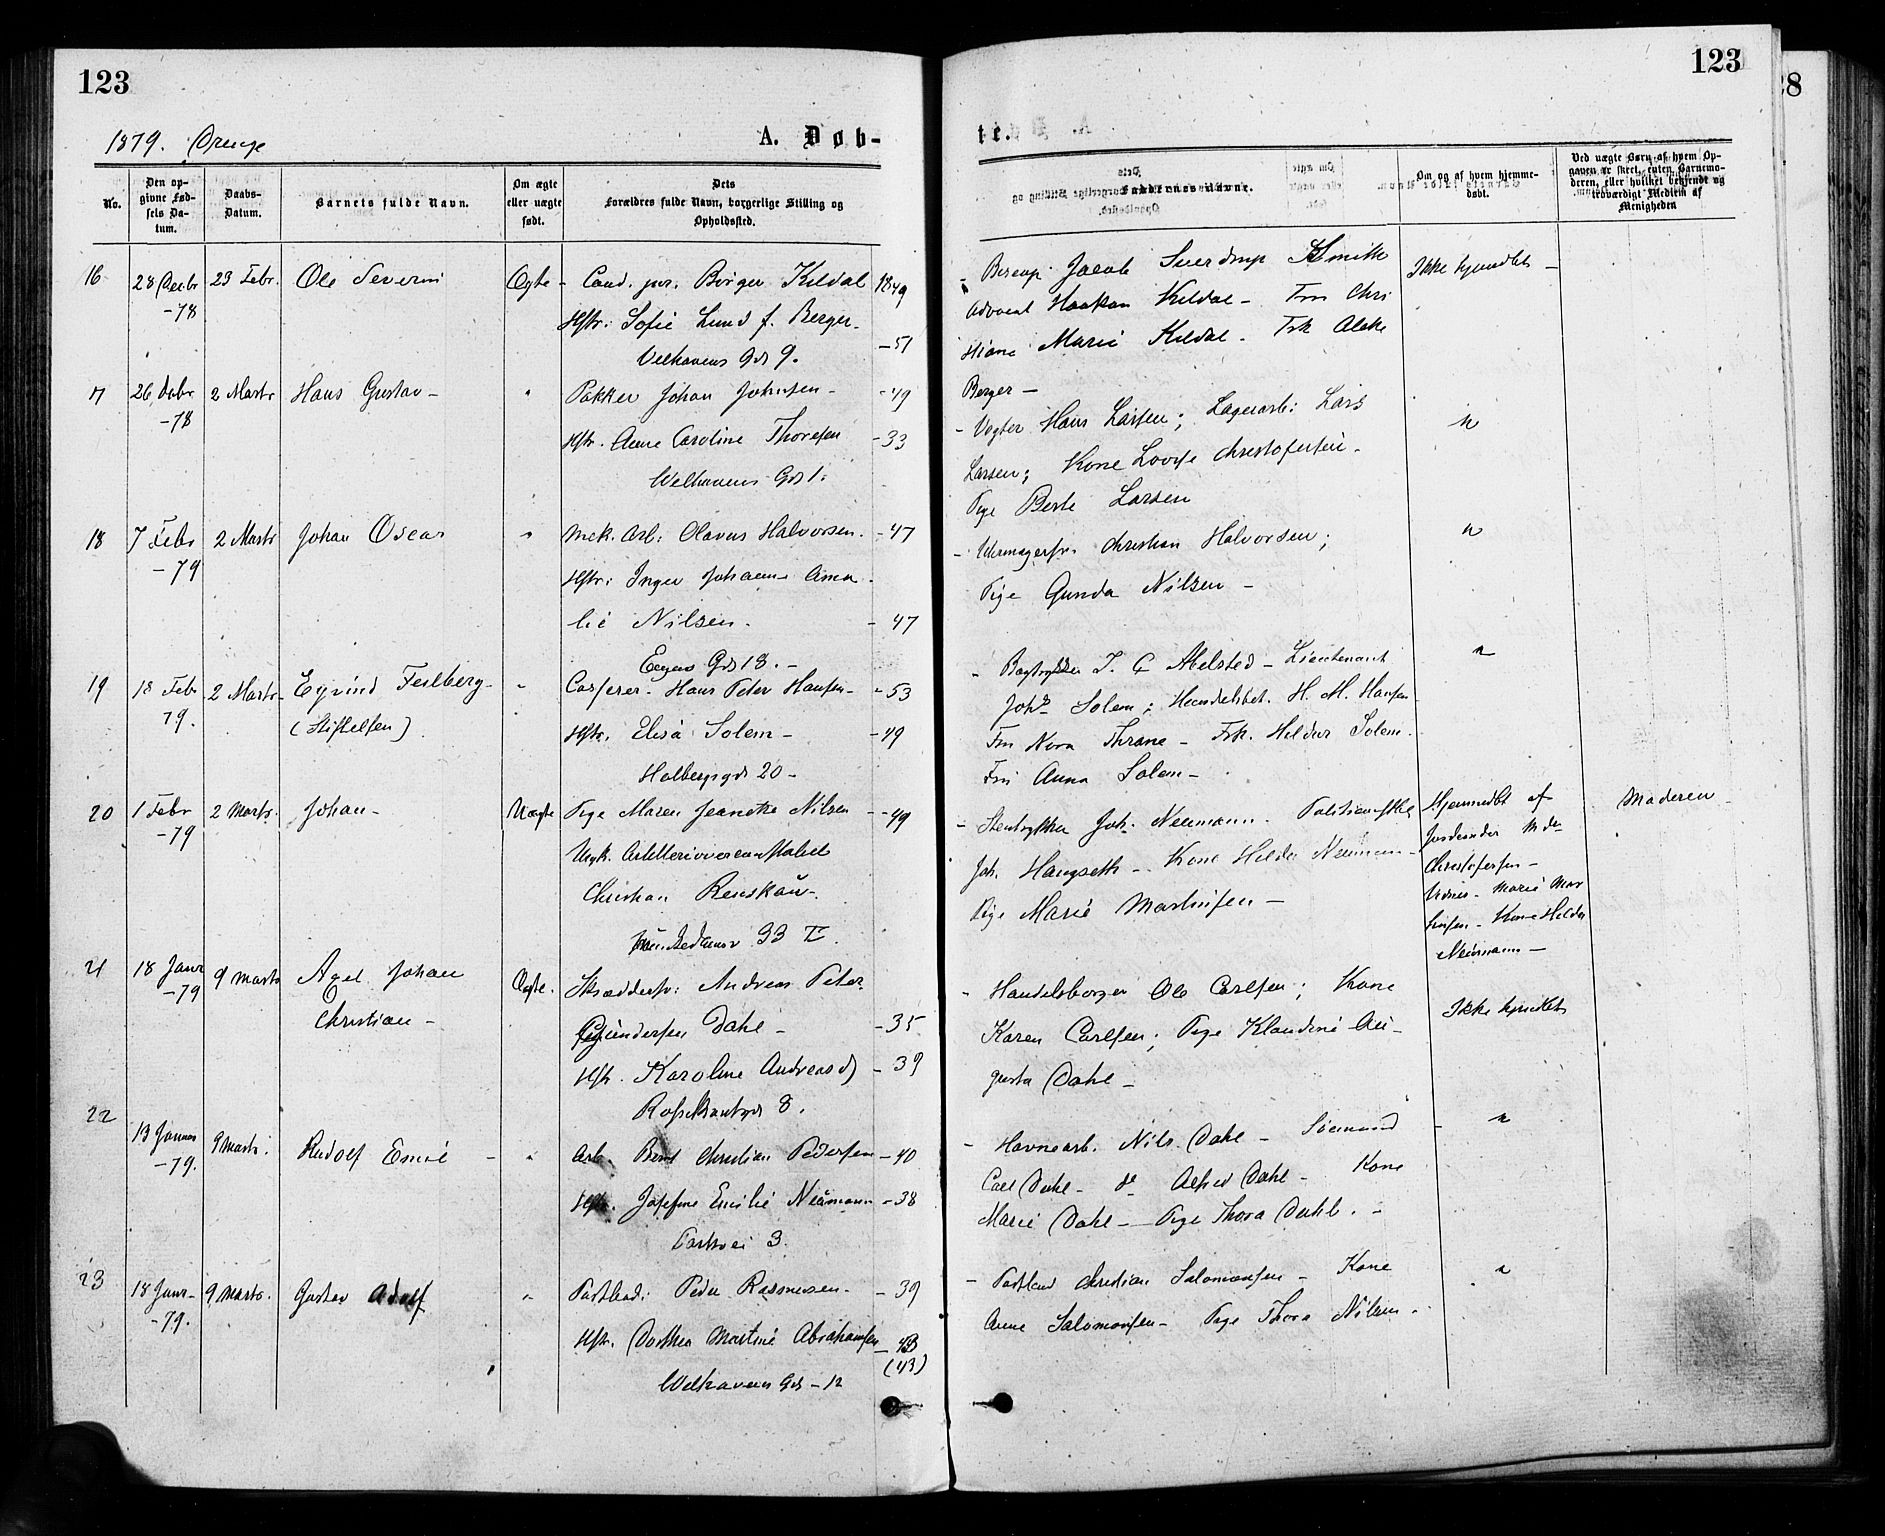 123
1879. Drenge
A. Døb-
No.
Den op-
givne Fød-
sels Da-
tum.
Daabs-
Datum.
Barnets fulde Navn.
Om ægte
eller uægte
født.
Dets
Forældres fulde Navn, borgerlige Stilling og
Opholdssted.
16
28 Decbr
-78
23 Febr.
Ole Severin
Ægte -
Cand. jur. Birger Kildal 1849
Hstr: Sofie Lund f. Berger -
-51
Velhavens Gd 9.
17
26 Debr
-78
2 Marts
Hans Gustav -
"
Pakker Johan Johnsen - -49
Hstr. Anne Caroline Thoresen -33
Welhavens Gd 1.
18
7 Febr
-79
2 Marts
Johan Oscar
"
Mek. Arb: Olavus Halvorsen. -47
Hstr: Inger Johanne Ama
lie Nilsen. - 47
Gd 18. -
19
18 Feb
79.
2 Marts
Eyvind Feilberg -
(Stiftelsen)
"
Casserer - Hans Peter Hansen - -53
Hstr. Elisa Solem - -49
Holbergsgd 20 -
20
1 Febr
-79
2 Marts.
Johan -
Uægte
Pige Maren Jeanette Nilsen - -49
Ungk.
Christian
33 II.
21
18 Janr
-79
9 Marts
Axel Johan
Christian -
Ægte.
Skrædersv: Andreas Peter
Gundersen Dahl - -35
Hstr. Karoline Andreasd) - 39
8.
22
13 Januar
-79.
9 Marts.
Rudolf Emil -
"
Arb. Bernt Christian Pedersen -40
Hstr. Josefine Emilie Neumann -38
Parkvei 3.
23
18 Janr-
-79.
9 Marts.
Gustav Adolf
"
Postbud: Peder Rasmusen. - 39
Hstr. Dorthea Martine Abrahamsen -
(43)
Welhavens Gd - 12
123
28
te.
Faddernes Navne.
Om og af hvem hjemme-
døbt.
Ved uægte Børn af hvem Op-
gaven er skeet, enten Barnemo-
deren, eller hvilket bekjendt og
troværdigt Medlem af
Menigheden
- Jacob Sverdrup Smith
Advocat Haakon Kildal - Fru Chri
stiane Marie Kildal. Frk
Berger -
Ikke hjemdbt -
- Vogter Hans Larsen; Lagerarb: Lars
Larsen; Kone Lovise Christofersen -
Pige Berte Larsen
"
- Uhrmagersv. Christian Halvorsen;
Pige Gunda Nilsen -
"
- Bogtrykker I. C Abelsted - Lieutenant
Johs Solem; H. M. Hansen
Fru Nora Thrane - Frk. Hildur Solem.
Fru Anna Solem -
"
- Stentrykker Joh. Neumann.
Joh. Haugseth - Kone Hilda Neumann -
Pige Marie Martinsen -
Hjemmedbt af
Christofersen -
Vidner - Marie Mar
tinsen - Kone Hilda
Neumann -
Moderen
- Handelsborger Ole Carlsen; Kone
Karen Carlsen; Pige Klaudine Au-
gusta Dahl -
Ikke hjmdbt
- Havnearb. Nils Dahl - Sømand
Carl Dahl - do Alfred Dahl - Kone
Marie Dahl - Pige Thora Dahl. -
"
- Postbud Christian Salomonsen - Kone
Anne Salomonsen - Pige Thora Nilsen.
"